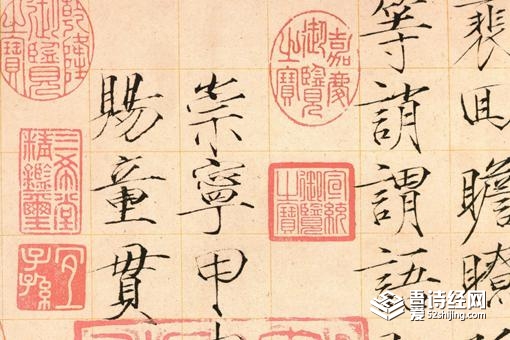 裴回瞻
等誚謂語
崇寧甲
賜童貫
嘉慶御覽之寶
宣統御覽之寶
乾隆御覽之寶
三希堂精鑑璽
宜子孫
吾爱诗经网
52shijing.com